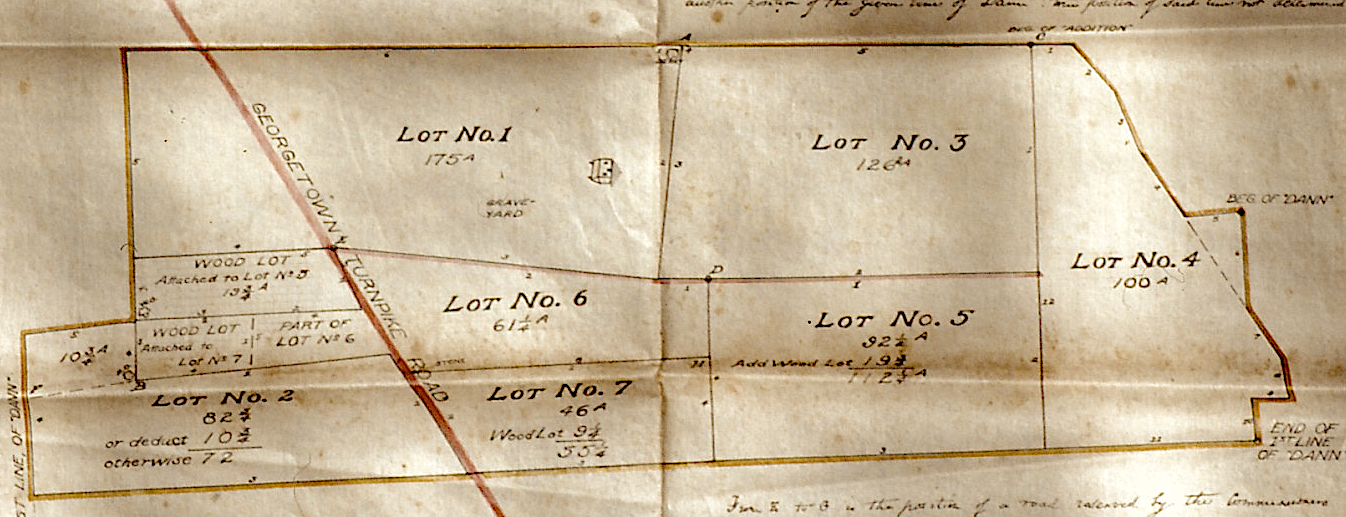 another position of the given lines of Dann. position of said line not determined
BEG. OF "ADDITION"
A
C
LOT NO. 1
175 A
LOT NO. 3
126 A
GRAVE-
YARD
GEORGETOWN TURNPIKE ROAD
BEG. OF "DANN"
WOOD LOT
Attached to Lot No 5
19 3/4 A
LOT NO. 4
100 A
D
LOT NO. 6
61 1/4 A
LOT NO. 5
92 1/2 A
Add Wood Lot 19 3/4
112 1/4 A
WOOD LOT
Attached to
Lot No 7
PART OF
LOT No 6
10 3/4 A
STONE
B
F
LOT NO. 2
82 3/4
or deduct 10 3/4
otherwise 72
LOT NO. 7
46 A
Wood Lot 9 1/4
55 1/4
END OF
1ST LINE
OF "DANN"
ST LINE, OF "DANN"
From E to G is the position of a road reserved by the Commissioners